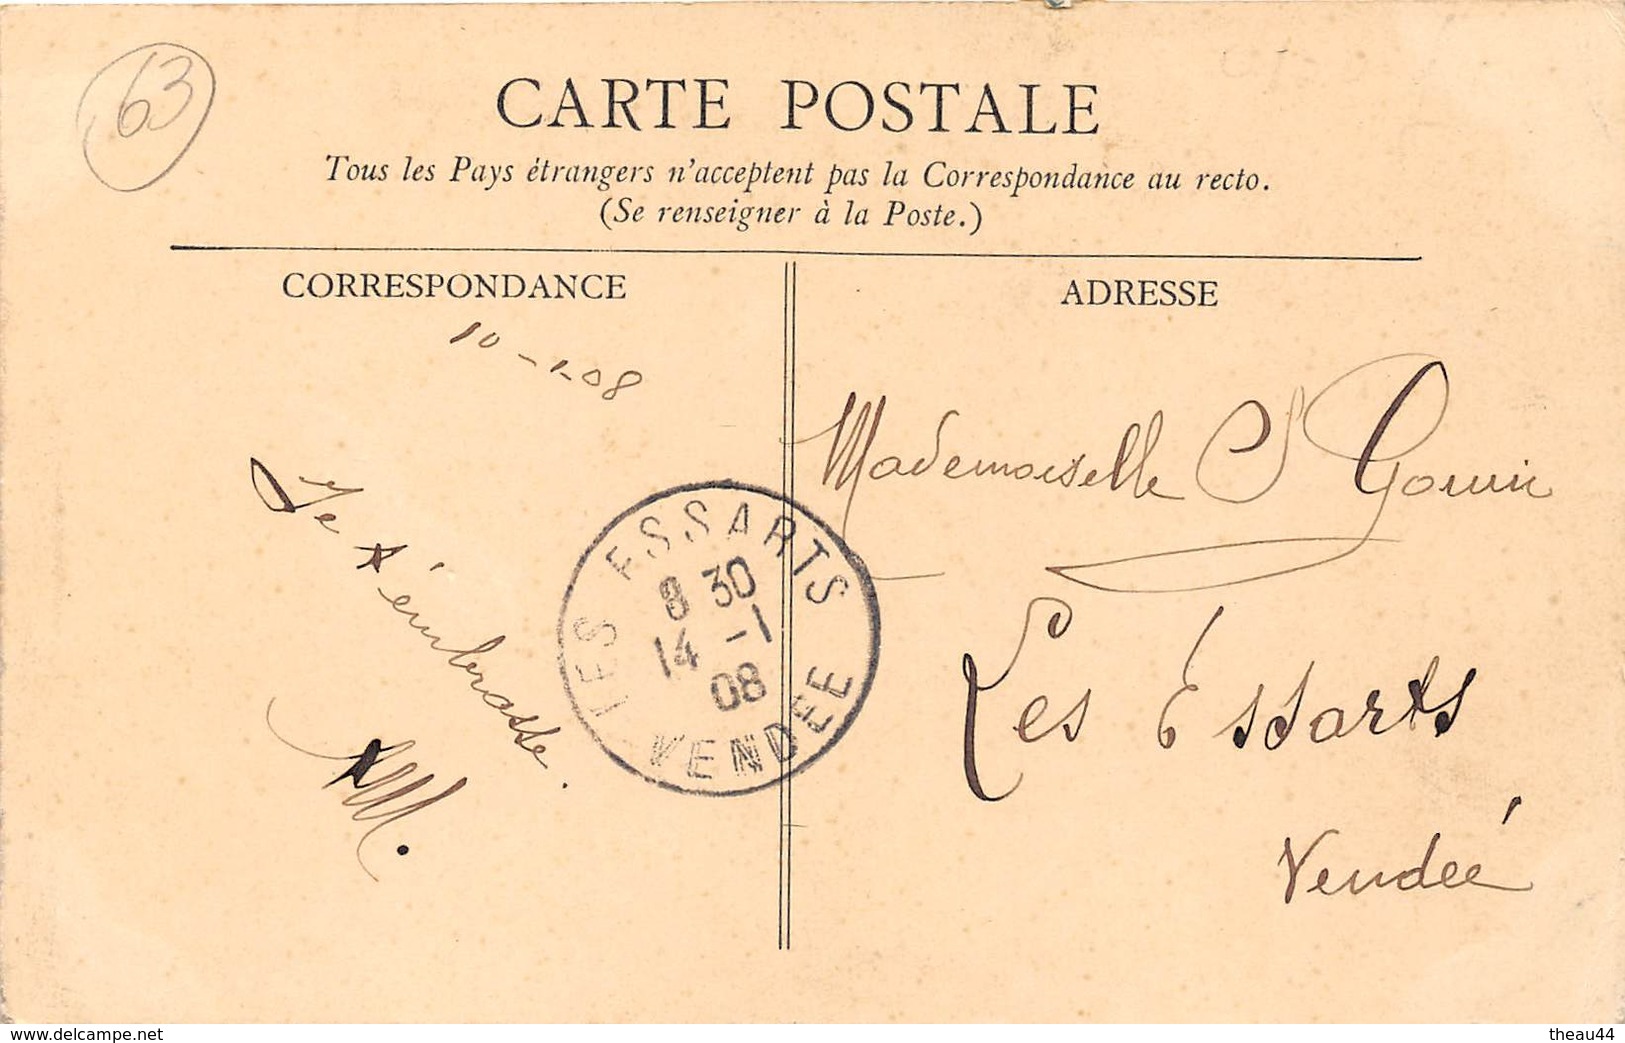 63
CARTE POSTALE
Tous les Pays étrangers n'acceptent pas la Correspondance au recto.
(Se renseigner à la Poste.)
CORRESPONDANCE
10-1-08
Je t'embrasse.
ADRESSE
Mademoiselle S Gouin
Les Essarts
Vendée
LES ESSARTS
8 30
14 -1
08
VENDEE
www.delcampe.net
theau44